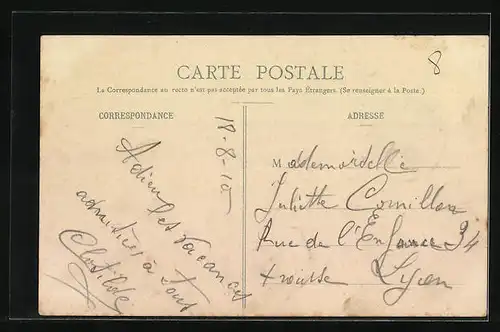 8
CARTE POSTALE
La Correspondance au recto n'est pas acceptée par tous les Pays Étrangers. (Se renseigner à la Poste.)
CORRESPONDANCE
ADRESSE
18-8-10
Adieu les vacances
à tous
Clotilde
Mademoiselle
Juliette Cornillon
Rue de l'Enfance 34
X rousse Lyon